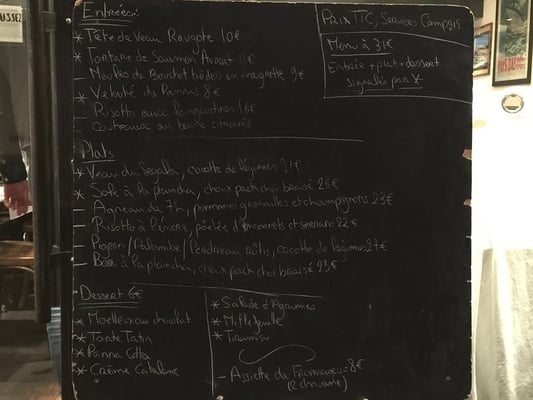 Entrées:
* Tête de Veau Ravigote 10€
* Tartare de Saumon Avocat 11€
- Moules de Bouchot tièdes en vinaigrette 9€
* Velouté de Panais 8€
- Risotto aux langoustines 16€
- Couteaux au beurre citronnée
Prix TTC, Services Compris
Menu à 31€
Entrée + plat + dessert
signalés par *
Plats:
* Veau du Ségala, cocotte de légumes 21€
* Sole à la plancha, choux pack choï braisé 26€
- Agneau de 7h, pommes grenailles et champignons 23€
- Risotto à l'encre, poêlée d'encornets et serrano 22€
- Pigeon/Palombe/Perdreau rôtis, cocotte de légumes 27€
- Bar à la plancha, choux pack choï braisé 23€
Dessert 6€
* Moelleux au chocolat
* Tarte Tatin
* Panna Cotta
* Crème Catalane
* Salade d'Agrumes
* Millefeuille
* Tiramisu
- Assiette de Fromages = 8€